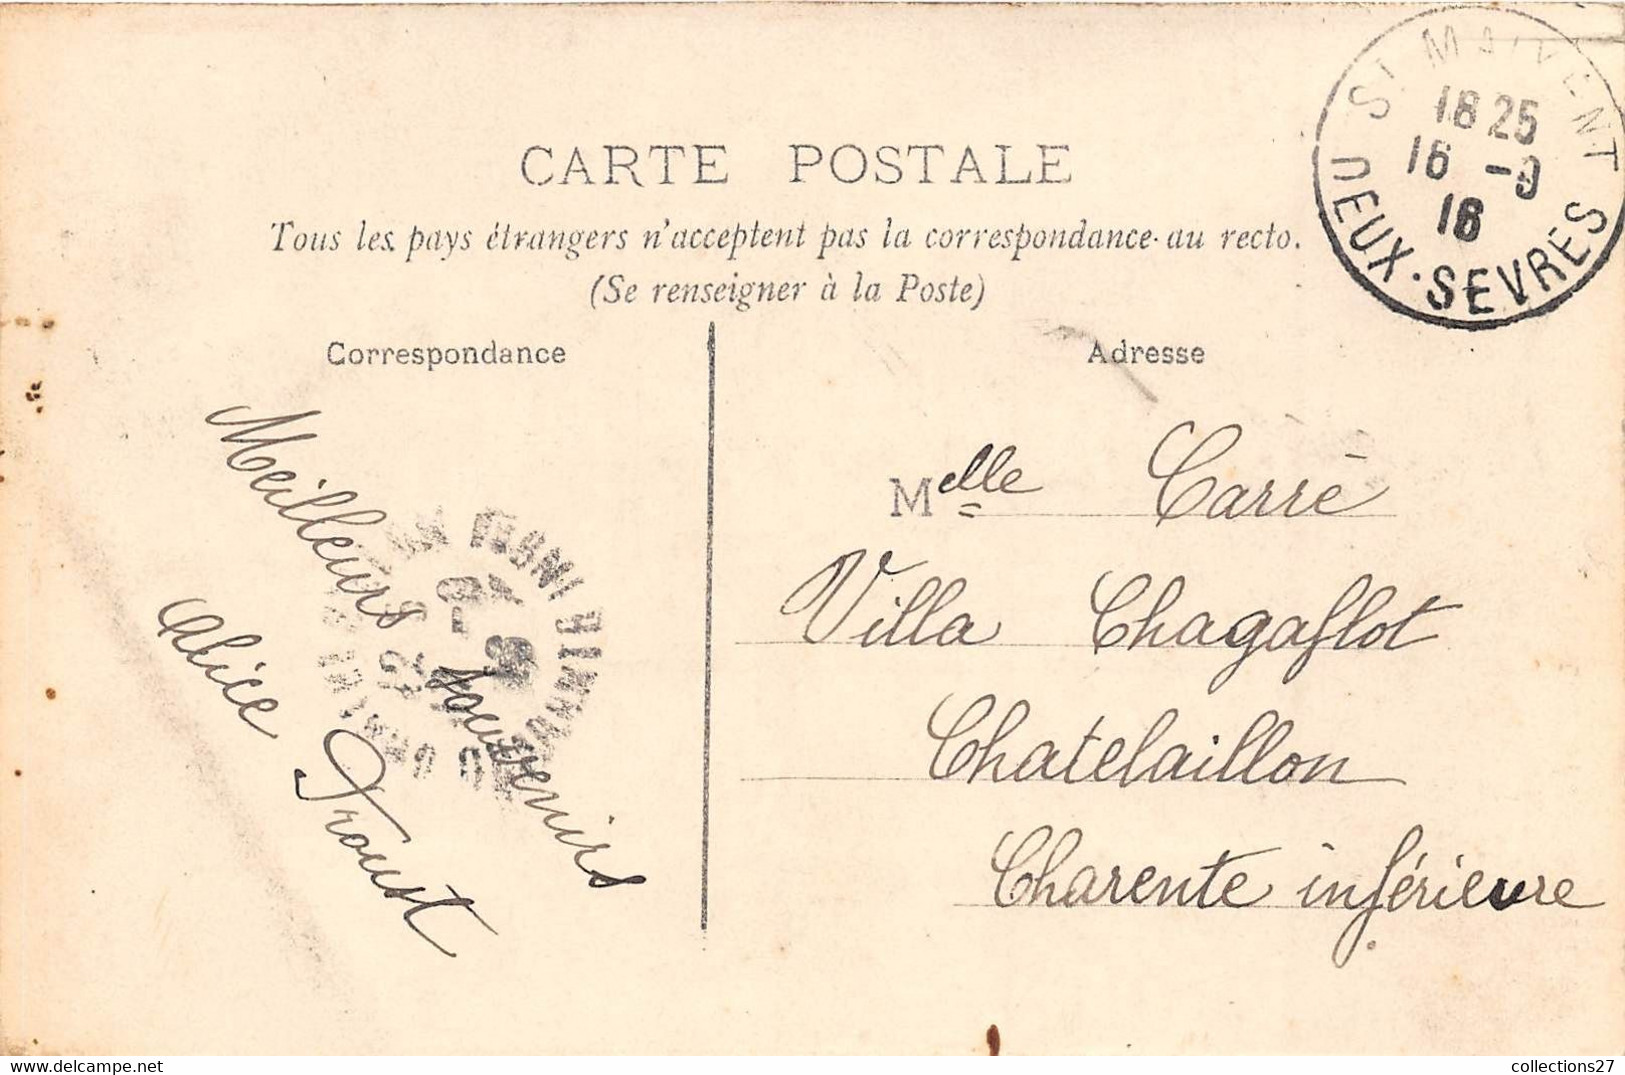 CARTE POSTALE
Tous les pays étrangers n'acceptent pas la correspondance au recto.
(Se renseigner à la Poste)
ST MAIXENT
18 25
16 -9
16
DEUX-SEVRES
Correspondance
Meilleurs souvenirs
Alice Proust
Adresse
Melle Carré
Villa Chagaflot
Chatelaillon
Charente inférieure
collections27